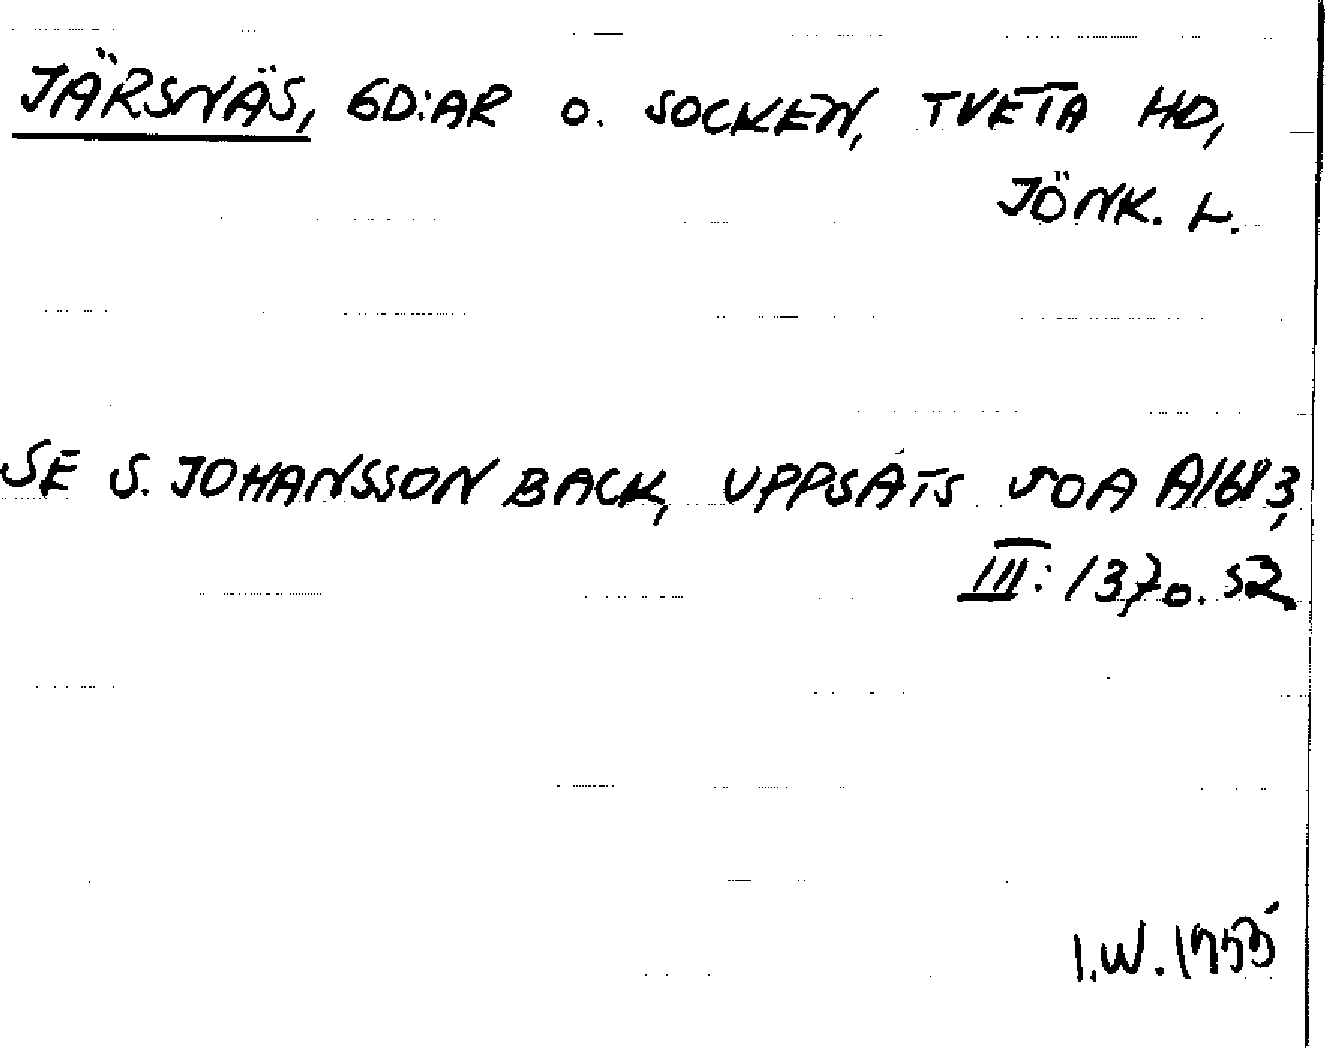 JÄRSNÄS, GD:AR O. SOCKEN, TVETA HD,
JÖNK. L.
SE S. JOHANSSON BACK, UPPSATS SOA A1683,
III: 137 o. 52
I.W. 1955